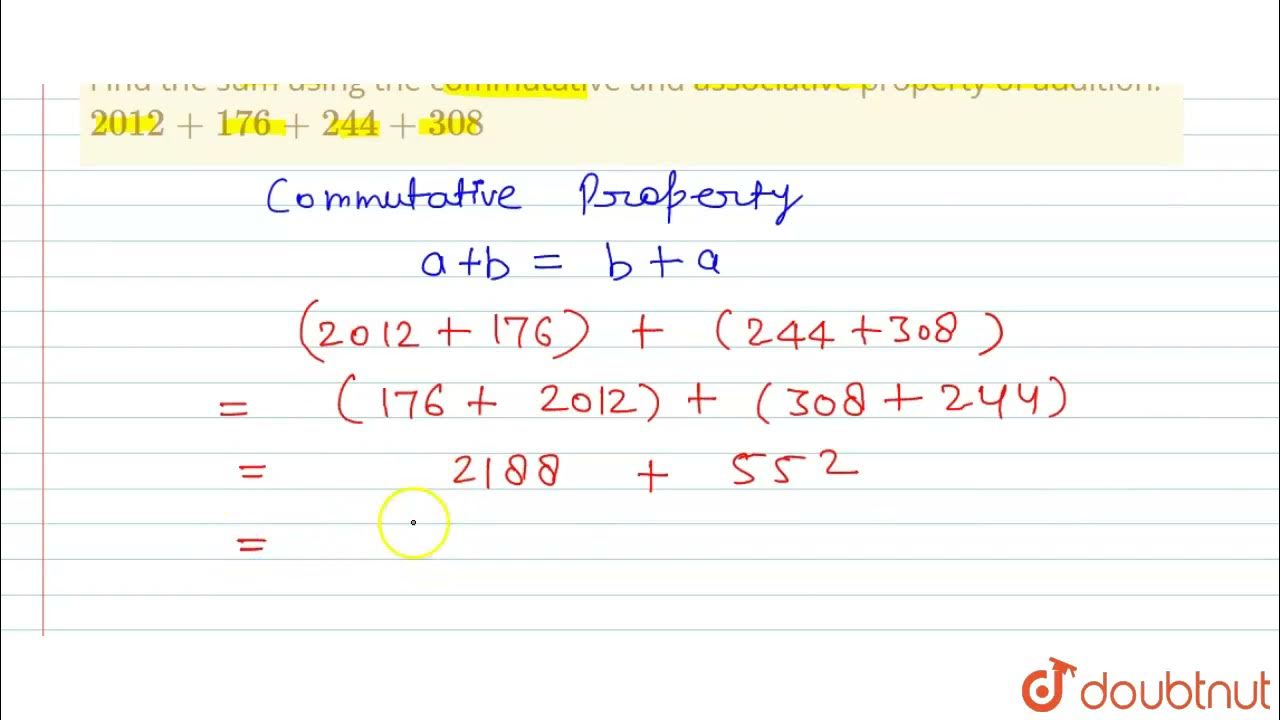 Find the sum using the commutative and associative property of addition.
2012 + 176 + 244 + 308
Commutative Property
a+b = b+a
(2012 + 176) + (244 + 308)
= (176 + 2012) + (308 + 244)
= 2188 + 552
=
doubtnut